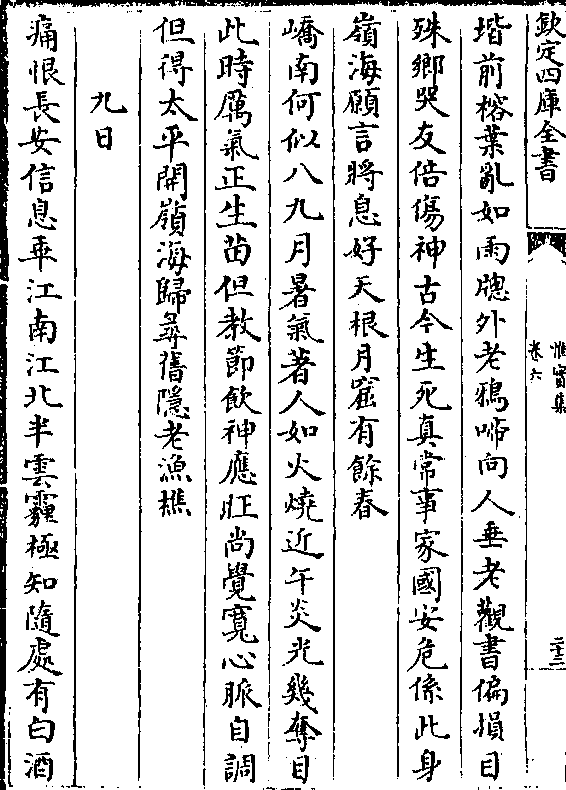 欽定四庫全書
惟實集
卷六
二十三
堦前榕葉亂如雨牕外老鴉啼向人垂老觀書偏損目
殊鄉哭友倍傷神古今生死真常事家國安危係此身
嶺海願言將息好天根月窟有餘春
嶠南何似八九月暑氣著人如火燒近午炎光幾奪目
此時厲氣正生苗但教節飲神應旺尚覺寛心脈自調
但得太平開嶺海歸尋舊隱老漁樵
九日
痛恨長安信息乖江南江北半雲霾極知隨處有白酒